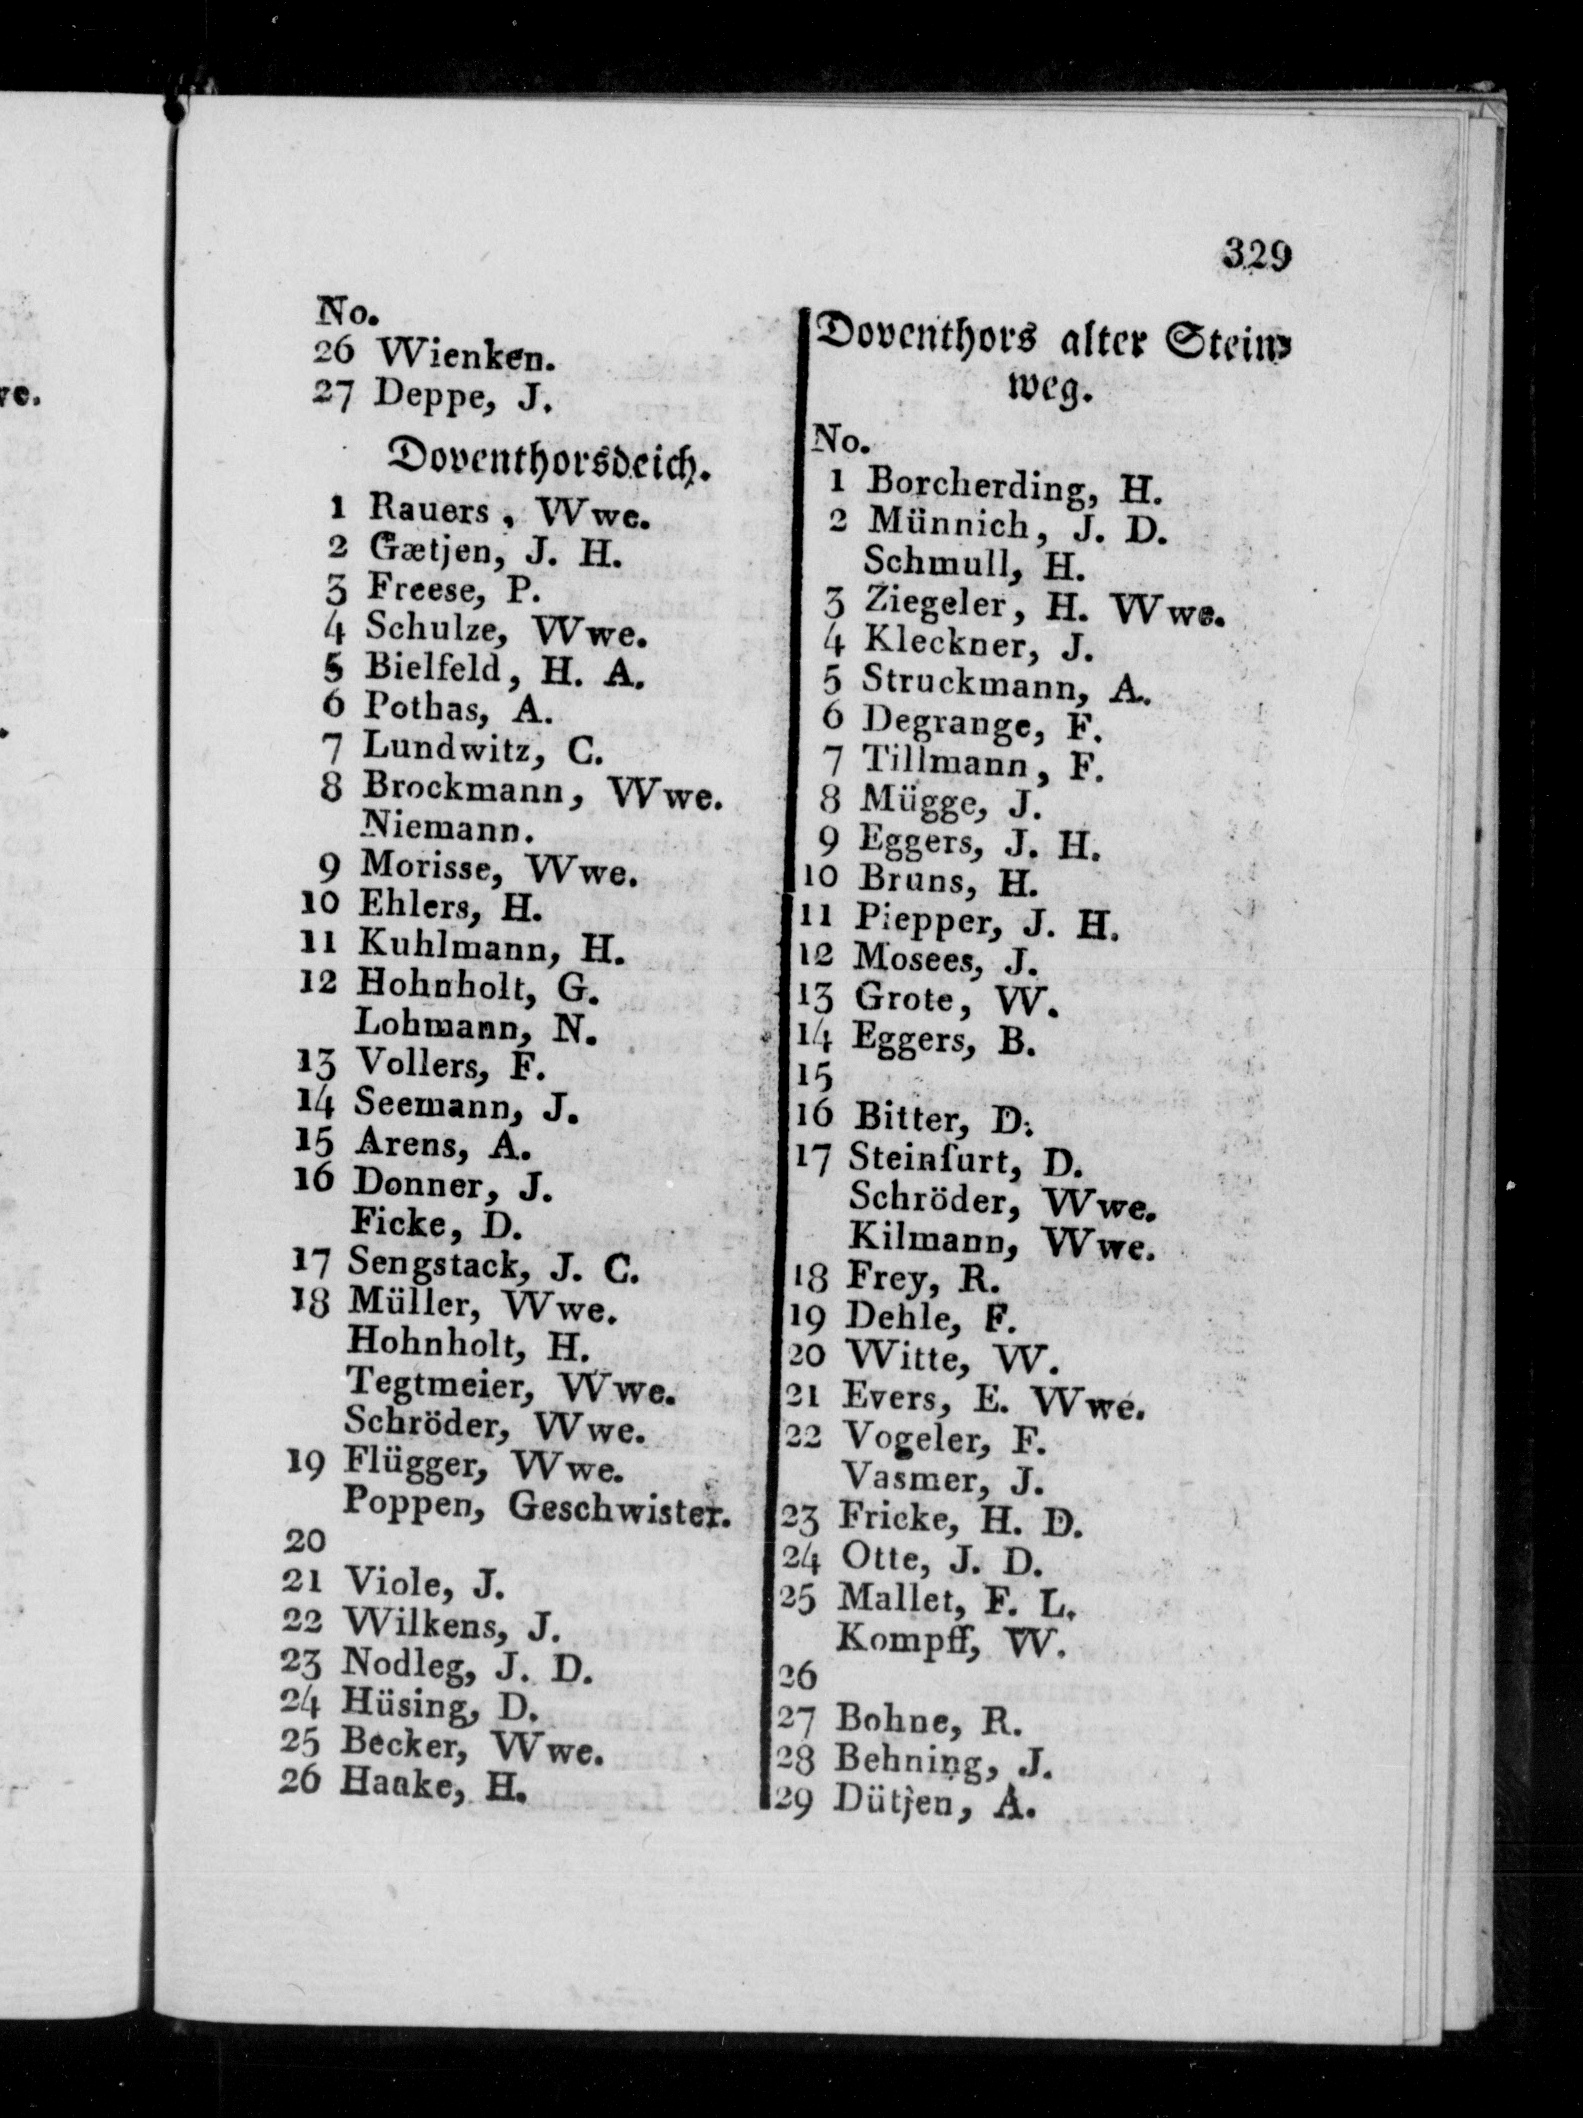 329
No.
26 Wienken.
27 Deppe, J.
Doventhorsdeich.
1 Rauers, Wwe.
2 Gætjen, J. H.
3 Freese, P.
4 Schulze, Wwe.
5 Bielfeld, H. A.
6 Pothas, A.
7 Lundwitz, C.
8 Brockmann, Wwe.
Niemann.
9 Morisse, Wwe.
10 Ehlers, H.
11 Kuhlmann, H.
12 Hohnholt, G.
Lohmann, N.
13 Vollers, F.
14 Seemann, J.
15 Arens, A.
16 Donner, J.
Ficke, D.
17 Sengstack, J. C.
18 Müller, Wwe.
Hohnholt, H.
Tegtmeier, Wwe.
Schröder, Wwe.
19 Flügger, Wwe.
Poppen, Geschwister.
20
21 Viole, J.
22 Wilkens, J.
23 Nodleg, J. D.
24 Hüsing, D.
25 Becker, Wwe.
26 Haake, H.
Doventhors alter Stein-
weg.
No.
1 Borcherding, H.
2 Münnich, J. D.
Schmull, H.
3 Ziegeler, H. Wwe.
4 Kleckner, J.
5 Struckmann, A.
6 Degrange, F.
7 Tillmann, F.
8 Mügge, J.
9 Eggers, J. H.
10 Bruns, H.
11 Piepper, J. H.
12 Mosees, J.
13 Grote, W.
14 Eggers, B.
15
16 Bitter, D.
17 Steinſurt, D.
Schröder, Wwe.
Kilmann, Wwe.
18 Frey, R.
19 Dehle, F.
20 Witte, W.
21 Evers, E. Wwe.
22 Vogeler, F.
Vasmer, J.
23 Fricke, H. D.
24 Otte, J. D.
25 Mallet, F. L.
Kompff, W.
26
27 Bohne, R.
28 Behning, J.
29 Dütjen, A.